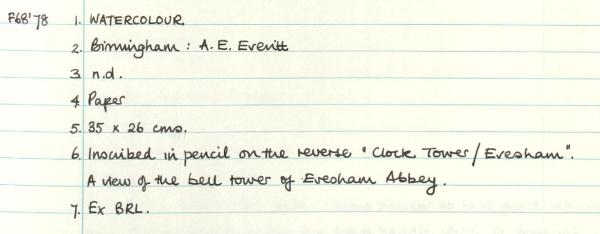 F68'78 1. WATERCOLOUR.
2. Birmingham : A. E. Everitt
3. n.d.
4. Paper
5. 35 x 26 cms.
6. Inscribed in pencil on the reverse "Clock Tower / Evesham".
A view of the bell tower of Evesham Abbey.
7. Ex BRL.